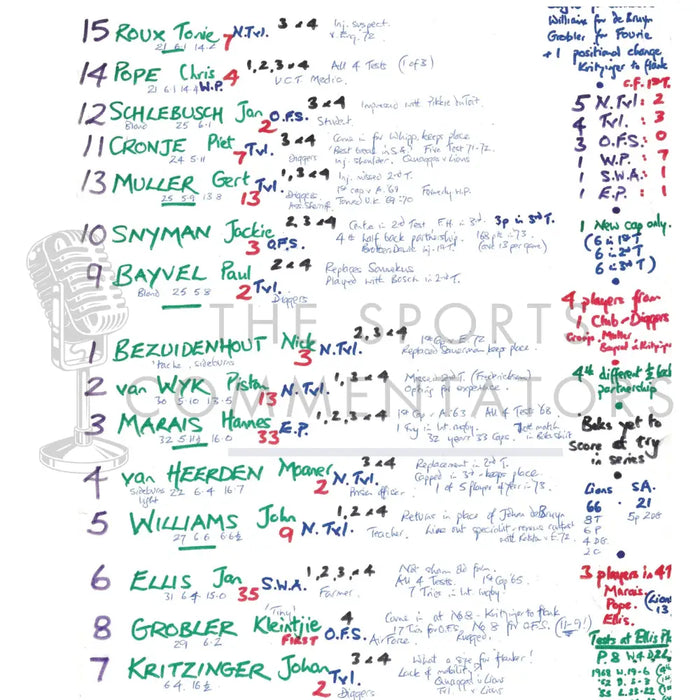 15 ROUX Tonie 7 N.Tvl. 3 & 4
Inj. suspect
v. Eng. 72
21 6.1 14.2
14 POPE Chris 4 W.P. 1,2,3 & 4 All 4 Tests (1 of 3)
21 6.1 14.4
U.C.T. Medic.
12 SCHLEBUSCH Jan 2 O.F.S. 3 & 4
Blond 25 6.1
Student
11 CRONJE Piet 7 Tvl. 3 & 4 Came in for Whipp. keeps place
24 5.11
Diggers
Inj. shoulder. Quaggas v Lions
13 MULLER Gert 13 Tvl. 1, 3 & 4 Inj. missed 2nd T.
25 5.9 13.8
Diggers
1st cap v A. '69 Formerly W.P.
Toured U.K. 69-70
10 SNYMAN Jackie 3 O.F.S. 2, 3 & 4 Came in 2nd Test F.H. in 3rd. 3p in 3rd T.
4th half back partnership.
9 BAYVEL Paul 2 Tvl. 2 & 4 Replaces Sonnekus
Blond 25 5.8
Diggers
Played with Bosch in 2nd T.
THE SPORTS
COMMENTATORS
1 BEZUIDENHOUT Nick 3 N.Tvl. 2, 3 & 4
'tache sideburns
Replaces Sauerman keeps place.
2 van WYK Piston 13 N.Tvl. 1, 2, 3 & 4
30 5.10 13.5
Opting for experience
3 MARAIS Hannes 33 E.P. 1, 2, 3 & 4 1st Cap v A. 63 All 4 Tests '68.
32 5.11½ 16.0
1 Try in Int. rugby.
32 years 33 Caps.
4 van HEERDEN Moaner 2 N.Tvl. 3 & 4 Replacement in 2nd T.
Sideburns light 22 6.4 16.7
Prison officer.
Capped in 3rd - keeps place.
1 of 5 players of year in 73.
5 WILLIAMS John 9 N.Tvl. 1, 2 & 4 Returns in place of John de Bruyn
27 6.6
Teacher.
Line out specialist
6 ELLIS Jan 35 S.W.A. 1, 2, 3 & 4
31 6.4 15.0
Farmer
All 4 Tests. 1st Cap '65.
7 Tries in Int. rugby
8 GROBLER Kleintjie FIRST O.F.S. 4 Came in at No 8 - Kritzinger to flank
'Tiny'
29 6.2
Air Force
No 8 for O.F.S. (11-9!)
7 KRITZINGER Johan 2 Tvl. 3 & 4 What a size for flanker!
6.4 16½
Diggers
Lack of mobility?
Quaggas v Lions
Tvl v Lions
Williams for de Bruyn
Grobler for Fourie
+ 1 positional change
Kritzinger to flank
C.F. 1st T.
5 N.Tvl: 2
4 Tvl: 3
3 O.F.S: 0
1 W.P: 7
1 S.W.A: 1
1 E.P: 1
1 New cap only.
(6 in 1st T
6 in 2nd T
6 in 3rd T)
4 players from
Club - Diggers
Cronje, Muller
Bayvel & Kritzinger
4th different ½ back
partnership
Boks yet to
score a try
in series
Lions S.A.
66 - 21
8 T
6 P
4 DG
2 C
3 players in 4th
Marais
Pope
Ellis.
Tests at Ellis Pk